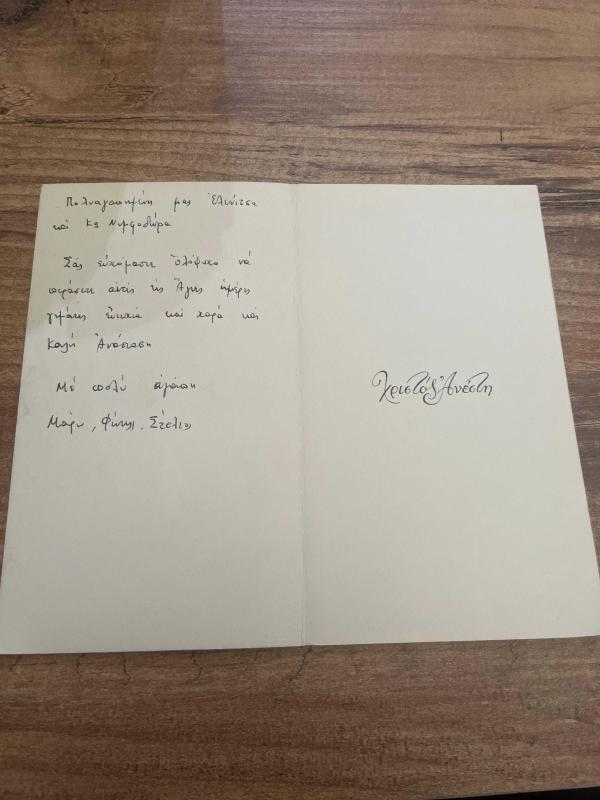 Πολυαγαπημένη μας Ἑλενίτσα
καί Κα Νυμφοδώρα
Σᾶς εὐχόμαστε ὁλόψυχα νά
περάσετε αὐτές τίς Ἅγιες ἡμέρες
γεμάτες Εὐτυχία καί χαρά καί
Καλή Ἀνάσταση
Μέ πολύ ἀγάπη
Μαίρη, Φώτης, Στέλιος
Χριστός Ἀνέστη